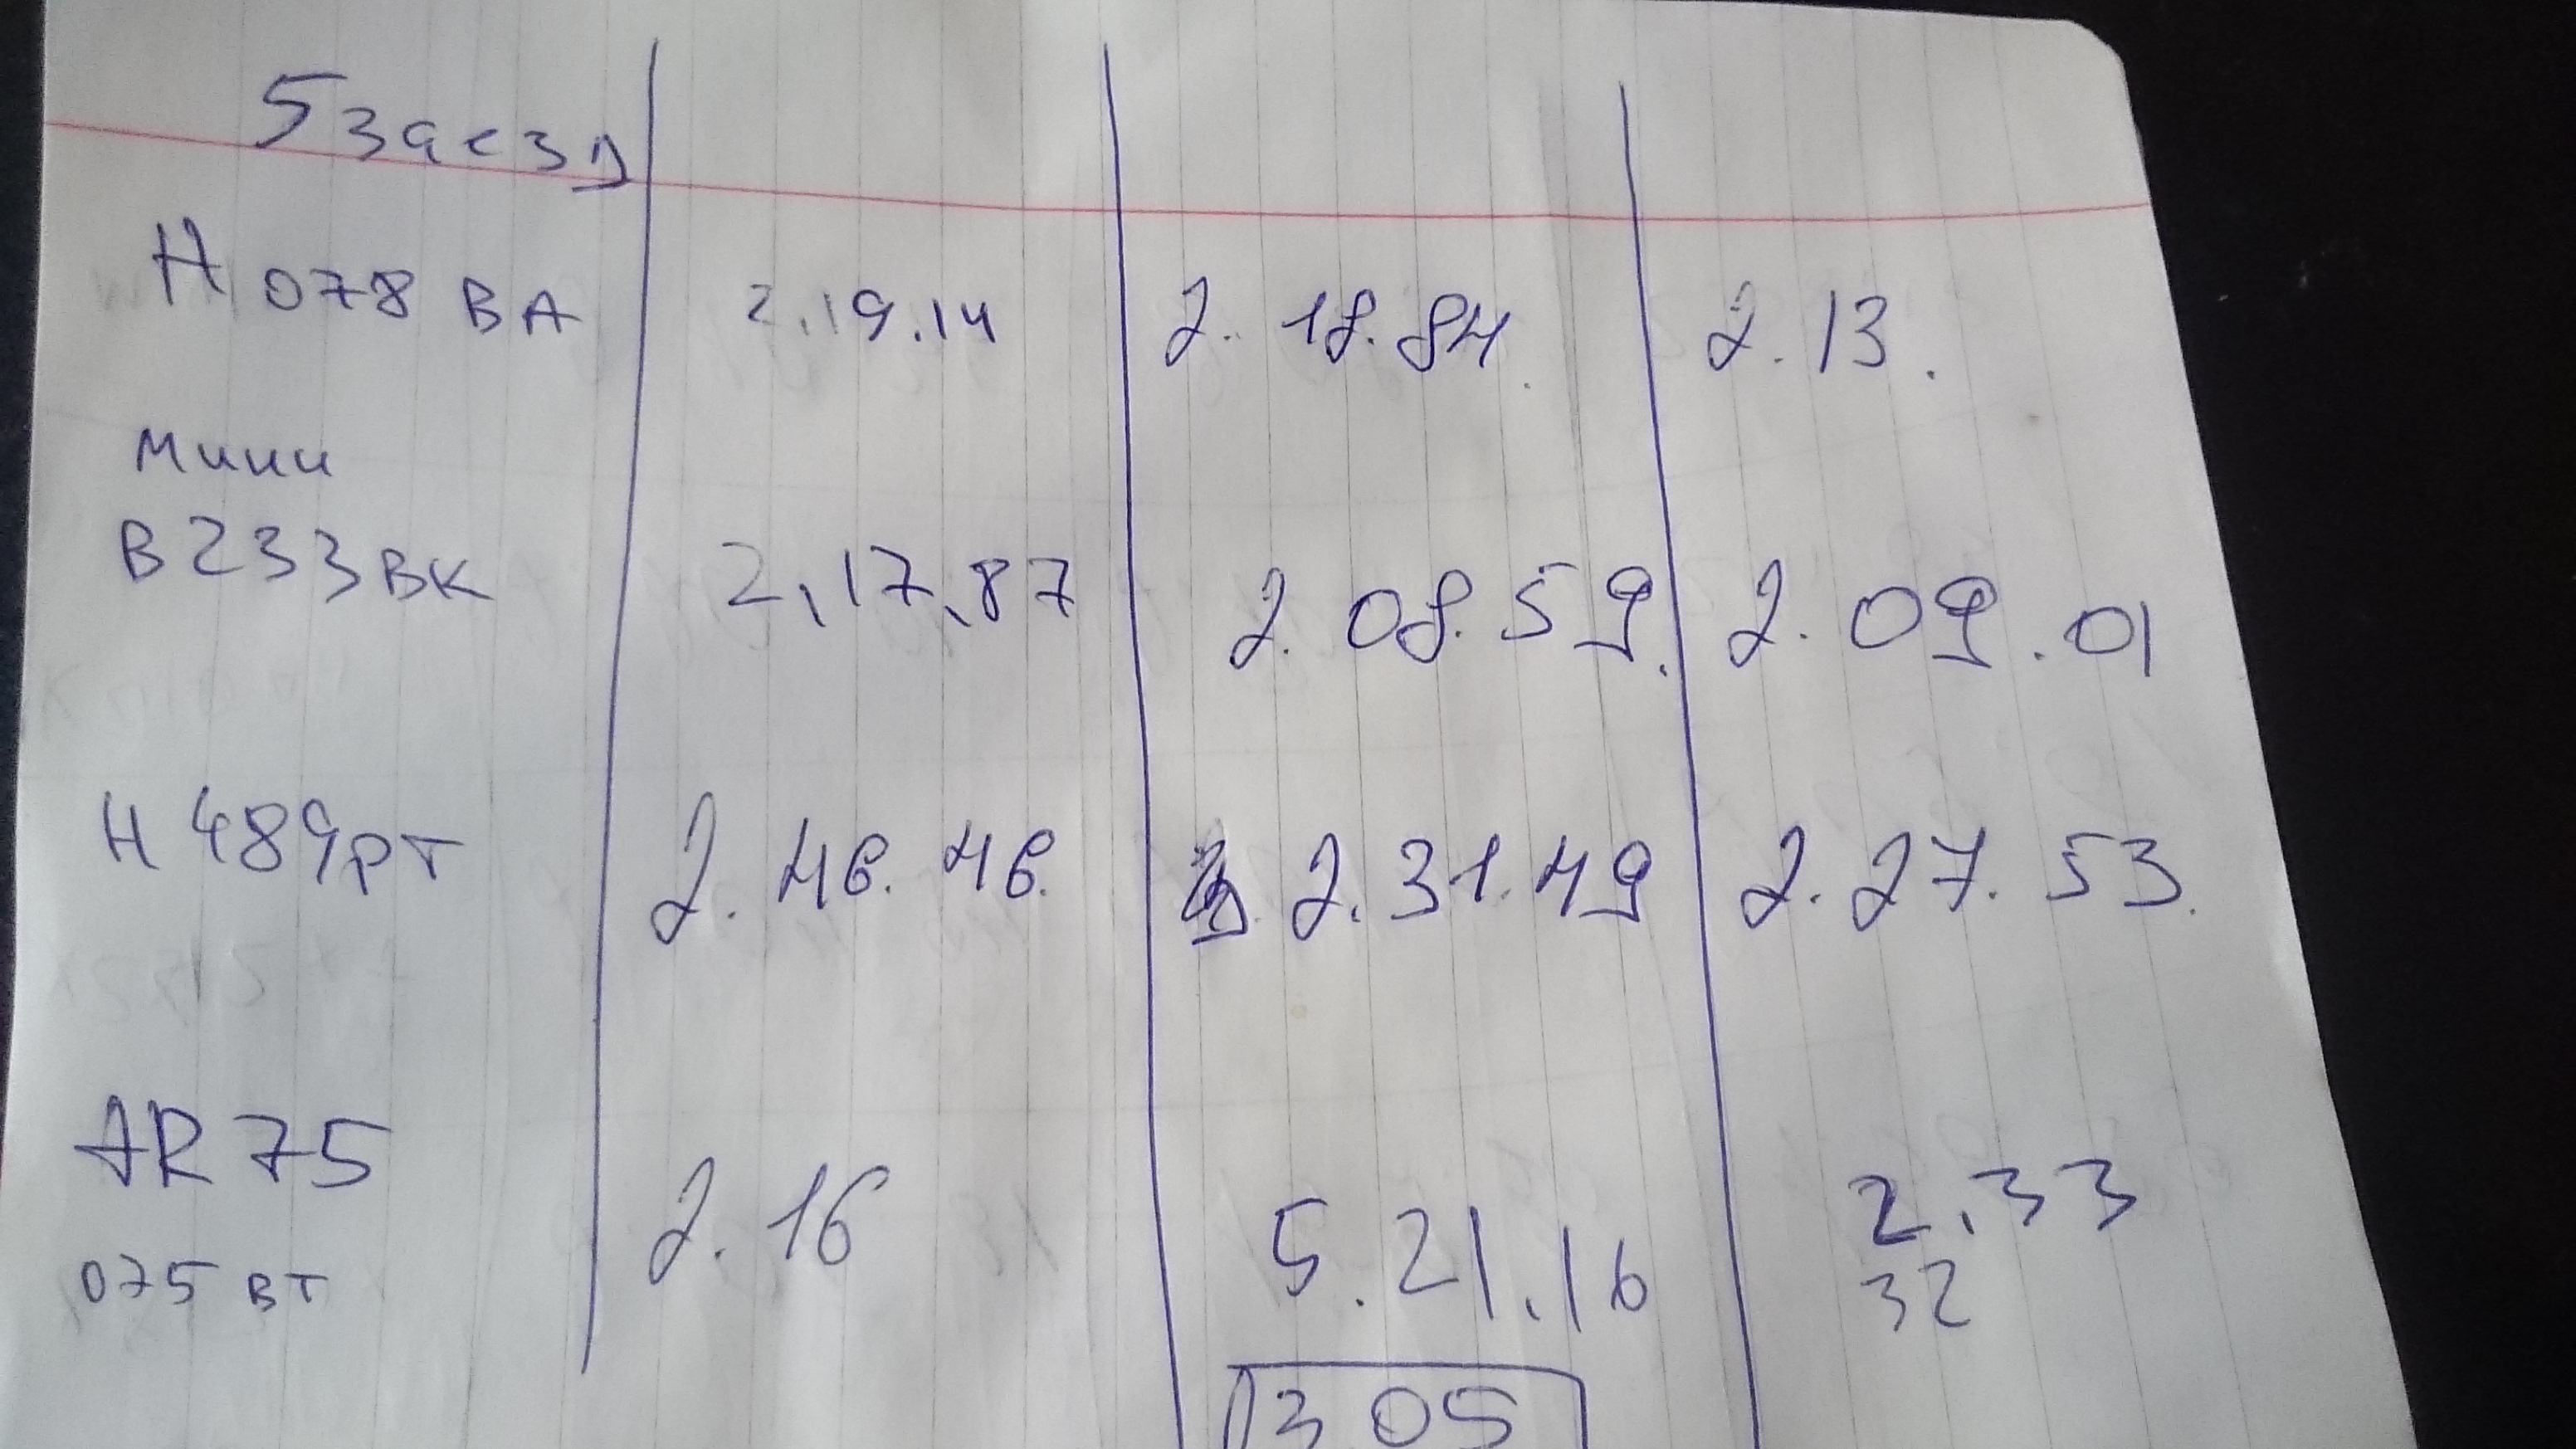 5 заезд
Н 078 ВА 2.19.14 2. 18.84. 2.13.
Мини
В233ВК 2,17,87 2.08.59. 2.09.01
Н 489РТ 2.46.46. 2.31.49 2.27.53.
AR 75 2.16 5.21.16 2.33
075 ВТ 32
3 05